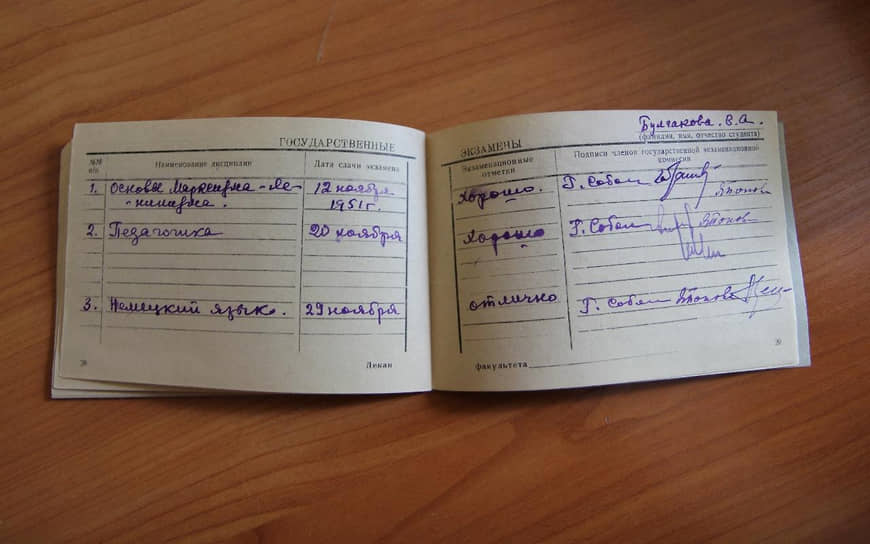 ГОСУДАРСТВЕННЫЕ
№№ п/п
Наименование дисциплин
Дата сдачи экзамена
1. Основы Марксизма-Ле-
-нинизма.
12 ноября
1951 г.
2. Педагогика
20 ноября
3. Немецкий язык.
29 ноября
Декан
Булгакова. В. А.
(фамилия, имя, отчество студента)
ЭКЗАМЕНЫ
Экзаменационные
отметки
Подписи членов государственной экзаменационной
комиссии
Хорошо.
Хорошо
отлично
факультета
39